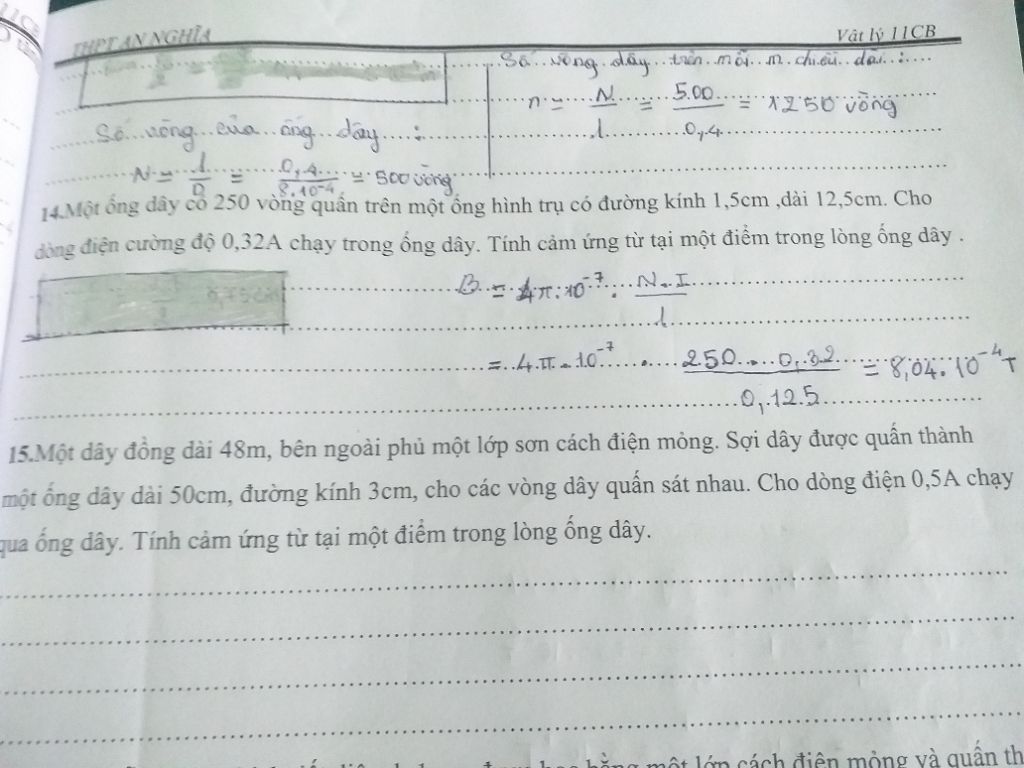 THPT AN NGHĨA
Vật lý 11CB
Số vòng dây trên mỗi m chiều dài :
n = N / l = 500 / 0,4 = 1250 vòng
Số vòng của ống dây :
N = l / D = 0,4 / 8.10⁻⁴ = 500 vòng
14.Một ống dây có 250 vòng quấn trên một ống hình trụ có đường kính 1,5cm ,dài 12,5cm. Cho
dòng điện cường độ 0,32A chạy trong ống dây. Tính cảm ứng từ tại một điểm trong lòng ống dây .
B = 4π.10⁻⁷ . N.I / l
= 4.π.10⁻⁷ . 250.0,32 / 0,125 = 8,04.10⁻⁴ T
15.Một dây đồng dài 48m, bên ngoài phủ một lớp sơn cách điện mỏng. Sợi dây được quấn thành
một ống dây dài 50cm, đường kính 3cm, cho các vòng dây quấn sát nhau. Cho dòng điện 0,5A chạy
qua ống dây. Tính cảm ứng từ tại một điểm trong lòng ống dây.
bằng một lớp cách điện mỏng và quấn th